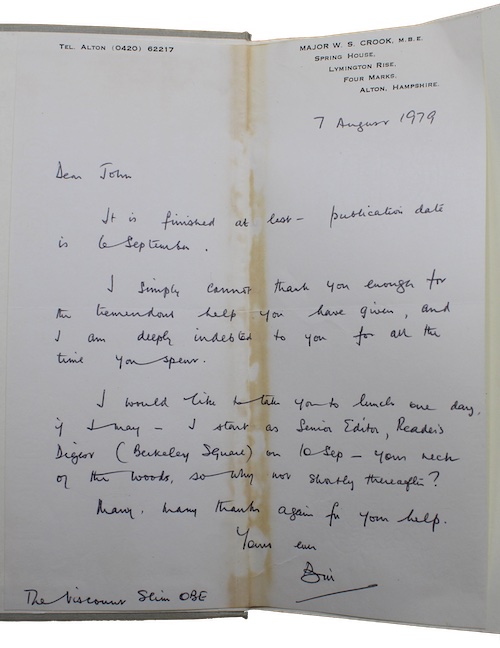 TEL. ALTON (0420) 62217
MAJOR W. S. CROOK, M.B.E.
SPRING HOUSE,
LYMINGTON RISE,
FOUR MARKS,
ALTON, HAMPSHIRE.
7 August 1979
Dear John
It is finished at last – publication date
is 6 September.
I simply cannot thank you enough for
the tremendous help you have given, and
I am deeply indebted to you for all the
time you spent.
I would like to take you to lunch one day,
if I may – I start as Senior Editor, Reader's
Digest (Berkeley Square) on 10 Sep – your neck
of the woods, so why not shortly thereafter?
Many, many thanks again for your help.
Yours ever
Bill
The Viscount Slim OBE